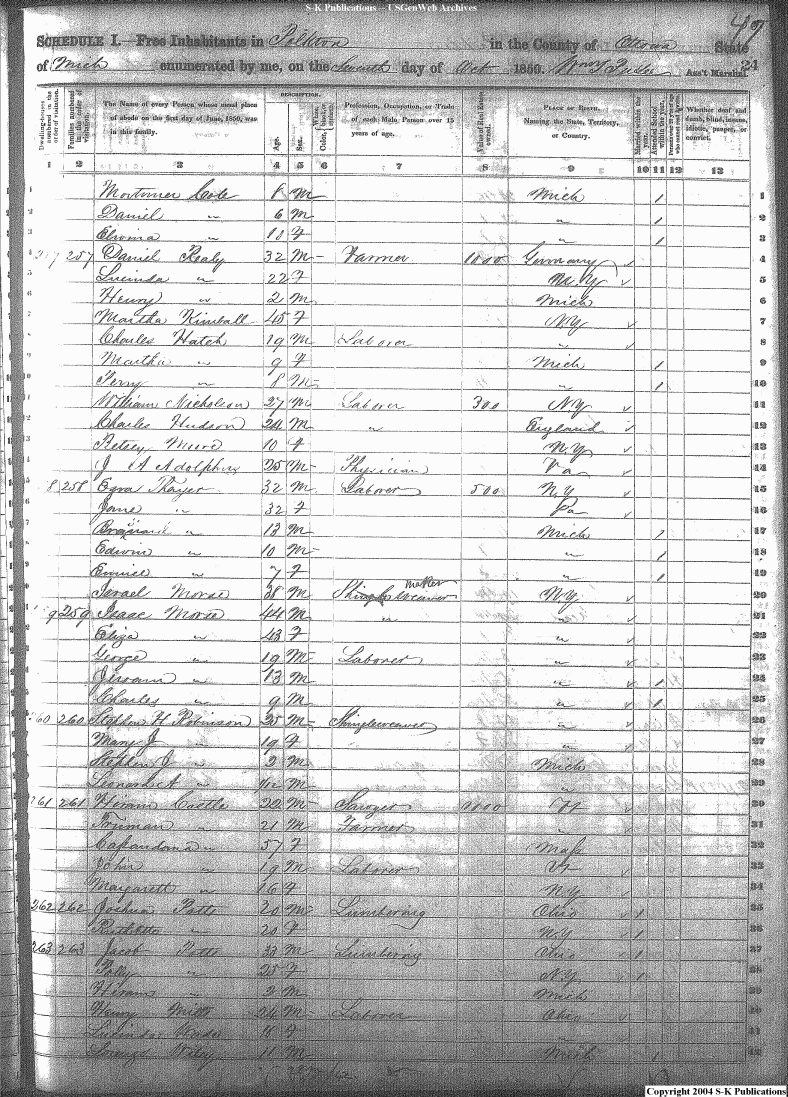 S-K Publications - USGenWeb Archives
49
SCHEDULE I. Free Inhabitants in Polkton in the County of Ottowa State
of Mich enumerated by me, on the day of Oct 1850. Wm Ass't Marshal. 24
Dwelling-houses numbered in the order of visitation.
Families numbered in the order of visitation.
The Name of every Person whose usual place of abode on the first day of June, 1850, was in this family.
DESCRIPTION.
Age.
Sex.
Color,
Profession, Occupation, or Trade of each Male Person over 15 years of age.
Value of Real Estate owned.
PLACE OF BIRTH. Naming the State, Territory, or Country.
Married within the year.
Attended School within the year.
Whether deaf and dumb, blind, insane, idiotic, pauper, or convict.
1 2 3 4 5 6 7 8 9 10 11 12 13
1 Mortimer 8 M Mich 1 1
2 Daniel " 6 M " 1 2
3 " 10 F " 1 3
257 Daniel Realy 32 M Farmer 1000 Germany 4
Lucinda " 22 F N.Y 5
Henry " 2 M Mich 6
Martha Kimball 45 F N.Y 7
Charles Hatch 19 M Laborer " 8
Martha " 9 F Mich 1 9
Perry " 8 M " 1 10
William Nicholson 27 M Laborer 300 N.Y 11
Charles Hudson 24 M " England 12
Betsey 10 F N.Y 13
J A Adolphus 25 M Physician Va 14
8 258 Ezra Thayer 32 M Laborer 500 N.Y 15
Jane " 32 F Pa 16
" 13 M Mich 1 17
Edwin " 10 M " 1 18
" 7 F " 1 19
Israel Morse 38 M Shingle maker N.Y 20
9 259 Isaac Morse 44 M " " 21
Eliza " 43 F " 22
George " 19 M Laborer " 23
" 13 M " 1 24
Charles " 9 M " 1 25
60 260 Stephen H Robinson 25 M Shingleweaver " 26
Mary J " 19 F " 27
Stephen J " 2 M Mich 28
Leonard A " /12 M " 29
261 261 Hiram Castle 22 M Sawyer 1000 Vt 30
Truman " 21 M Farmer " 31
" 57 F Mass 32
John " 19 M Laborer Vt 33
Margarett " 16 F N.Y 34
262 262 Joshua Potts 20 M Lumbering Ohio 1 35
" 20 F N.Y 1 36
263 263 Jacob Potts 33 M Lumbering Ohio 1 37
Polly " 25 F N.Y 1 38
Hiram " 2 M Mich
Henry 24 M Laborer Ohio
Lucinda 11 F "
Lorenzo 11 M Mich 1 42
Copyright 2004 S-K Publications